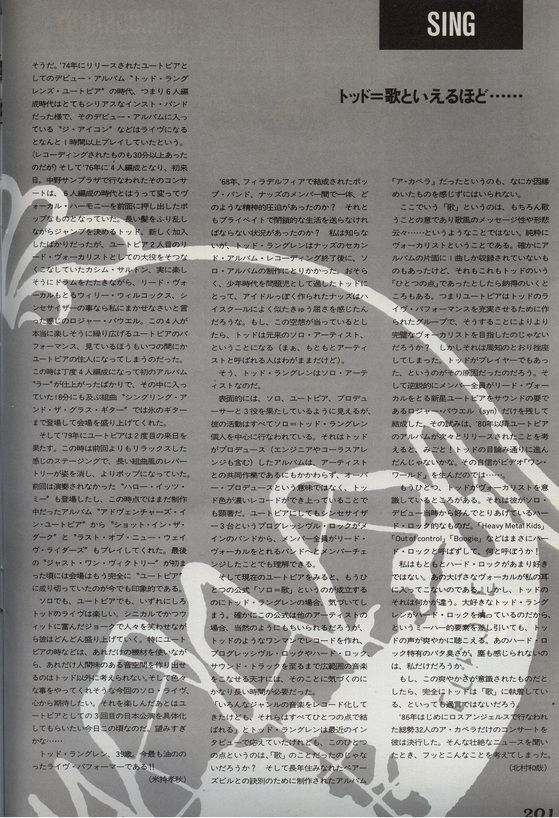 SING
トッド=歌といえるほど……
そうだ。'74年にリリースされたユートピアと
してのデビュー・アルバム“トッド・ラング
レンズ・ユートピア”の時代、つまり6人編
成時代はとてもシリアスなインスト・バンド
だった様で、そのデビュー・アルバムに入っ
ている“ジ・アイコン”などはライヴになる
となんと1時間以上プレイしていたという。
(レコーディングされたものも30分以上あった
のだが)そして'76年に4人編成となり、初来
日。中野サンプラザで行なわれたそのコンサ
ートは、6人編成の時代とはうって変ってヴ
ォーカル・ハーモニーを前面に押し出したポ
ップなものとなっていた。長い髪をふり乱し
ながらジャンプを決めるトッド。新しく加入
したばかりだったが、ユートピア2人目のリ
ード・ヴォーカリストとしての大役をそつな
くこなしていたカシム・サルトン、実に楽し
そうにドラムをたたきながら、リード・ヴォ
ーカルもとるウィリー・ウィルコックス、シ
ンセサイザーの事なら私にまかせなさいと言
った感じのロジャー・パウエル。この4人が
本当に楽しそうに繰り広げるユートピアのパ
フォーマンス、見ているほうもいつの間にか
ユートピアの住人になってしまうのだった。
この時は丁度4人編成になって初のアルバム
“ラー”が仕上がったばかりで、その中に入っ
ていた18分にも及ぶ組曲“シングリング・ア
ンド・ザ・グラス・ギター”では氷のギター
まで登場して会場を盛り上げてくれた。
そして'79年にユートピアは2度目の来日を
果す。この時は前回よりもリラックスした
感じのステージングで、長い組曲風のレパー
トリーが姿を消し、よりポップになっていた。
前回は演奏されなかった“ハロー・イッツ・
ミー”も登場したし、この時点ではまだ制作
中だったアルバム“アドヴェンチャーズ・イ
ン・ユートピア”から“ショット・イン・ザ・
ダーク”と“ラスト・オブ・ニュー・ウェイ
ヴ・ライダーズ”もプレイしてくれた。最後
の“ジャスト・ワン・ヴィクトリー”が始ま
った頃には会場はもう完全に“ユートピア”
に成り切っていたのが今でも印象的である。
ソロでも、ユートピアでも、いずれにしろ
トッドのライヴは楽しい。シニカルでかつウ
ィットに富んだジョークで人々を笑わせなが
ら彼はどんどん盛り上げていく。特にユート
ピアの時などは、あれだけの機材を使いなが
ら、あれだけ人間味のある音空間を作り出せ
るのはトッド以外に考えられない。そして色々
な事をやってくれそうな今回のソロ・ライヴ、
心から期待したい。それを楽しんだあとはユ
ートピアとしての3回目の日本公演を具体化
してもらいたい今日この頃なのだ。望みすぎ
かな……
トッド・ラングレン、39歳。今最も油のの
ったライヴ・パフォーマーである!!
(米持孝秋)
'68年、フィラデルフィアで結成されたポッ
プ・バンド、ナッズのメンバー間で一体、ど
のような精神的圧迫があったのか? それと
もプライベイトで閉鎖的な生活を送らなけれ
ばならない状況があったのか? 私は知らな
いが、トッド・ラングレンはナッズのセカン
ド・アルバム・レコーディング終了後に、ソ
ロ・アルバムの制作にとりかかった。おそら
く、少年時代を問題児として過したトッドに
とって、アイドルっぽく作られたナッズはハ
イスクールによく似たきゅう屈さを感じたん
だろうな。もし、この空想が当っているとし
たら、トッドは元来のソロ・アーティスト、
ということになる(まぁ、もともとアーティ
ストと呼ばれる人はわがままだけど)。
そう、トッド・ラングレンはソロ・アーテ
ィストなのだ。
表面的には、ソロ、ユートピア、プロデュ
ーサーと3役を果たしているように見えるが、
彼の活動はすべてソロ=トッド・ラングレン
個人を中心に行なわれている。それはトッド
がプロデュース(エンジニアやコーラスアレ
ンジも含む)したアルバムは、アーティスト
との共同作業であるにもかかわらず、オーバ
ー・プロデュースという意味ではなく、トッ
ド色が濃いレコードができ上っていることで
も顕著だ。ユートピアにしてもシンセサイザ
ー3台というプログレッシヴル・ロックがメ
インのバンドから、メンバー全員がリード・
ヴォーカルをとれるバンドへとメンバーチェ
ンジしたことでも理解できる。
そして現在のユートピアをみると、もうひ
とつの公式“ソロ=歌”というのが成立する
のにトッド・ラングレンの場合、気づいてし
まう。確かにこの公式は他のアーティストの
場合、当然のようにもちいられるだろうが、
トッドのようなワンマン・レコードを作れ、
プログレッシヴル・ロックやハード・ロック、
サウンド・トラックを至るまで広範囲の音楽
をこなせる天才には、そのことに気づくのに
かなり長い時間が必要だった。
「いろんなジャンルの音楽をレコード化して
きたけども、それらはすべてひとつの点で結
ばれる」とトッド・ラングレンは最近のイン
タビューで応えていたけれども、このひとつ
の点というのは、「歌」のことだったのじゃな
いだろうか? そして長年住みなれたベアー
ズビルとの訣別のために制作されたアルバム
「ア・カペラ」だったというのも、なにか因縁
めいたものを感じずにはいられない。
ここでいう「歌」というのは、もちろん歌
うことの意であり歌風のメッセージ性や形態
云々……というようなことではない。純粋に
ヴォーカリストということである。確かにア
ルバムの片面に1曲しか収録されていないも
のもあったけど、それもこれもトッドのいう
「ひとつの点」であったとしたら納得のいくと
ころもある。つまりユートピアはトッドのラ
イヴ・パフォーマンスを充実させるために作
られたグループで、そうすることによりより
完璧なヴォーカリストを目指したのじゃない
だろうか? しかしそれは周知のとおり挫折
してしまった。トッドがプレイヤーでもあっ
た、というのがその原因だったのだろう。そ
して逆説的にメンバー全員がリード・ヴォー
カルをとる新星ユートピアをサウンドの要で
あるロジャー・パウエル(シンセ)だけを残して
結成した。その試みは、'80年以降ユートピア
のアルバムが次々とリリースされたことを考
えると、みごと!トッドの目論み通りに進ん
だんじゃないかな。その自信がビデオ「ワン・
ワールド」を生んだのでは……。
もうひとつ、トッドがヴォーカリストを意
識しているところがある。それは彼がソロ・
デビュー当時から好んでとりあげているハー
ド・ロック的なものだ。「Heavy Metal Kids」
「Out of control」「Boogie」などはまさにハー
ド・ロックとよばずして、何と呼ぼうか!
私はもともとハード・ロックがあまり好き
ではない。あの大げさなヴォーカルが私の耳
に入ってこないのである。しかし、トッドの
それは何かが違う。大好きなトッド・ラング
レンがハード・ロックを演っているのだから、
というミーハー的要素を差し引いても、トッ
ドの声が爽やかに聴こえる。あのハード・ロ
ック特有のバタ臭さが。塵も感じられないの
は、私だけだろうか。
もし、この爽やかさが意識されたものだと
したら、完全にトッドは「歌」に執着してい
る、といっても過言ではないだろう。
'86年はじめにロスアンジェルスで行なわれ
た総勢32人のア・カペラだけのコンサートを
彼は決行した。そんな壮絶なニュースを聞い
たとき、フッとこんなことを考えてしまった。
(北村和哉)
201